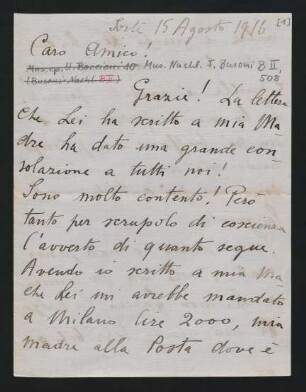 Forte 15 Agosto 1916 [1]
Caro Amico!
Mus.ep. U. Boccioni 10 Mus. Nachl. F. Busoni B II,
(Busoni-Nachl. B II) 508
Grazie! La lettera
che Lei ha scritto a mia Ma-
dre ha dato una grande con-
solazione a tutti noi!
Sono molto contento! Però
tanto per scrupolo di coscienza
l'avverto di quanto segue.
Avendo io scritto a mia Ma
che Lei mi avrebbe mandato
a Milano lire 2000, mia
madre alla Posta dove è